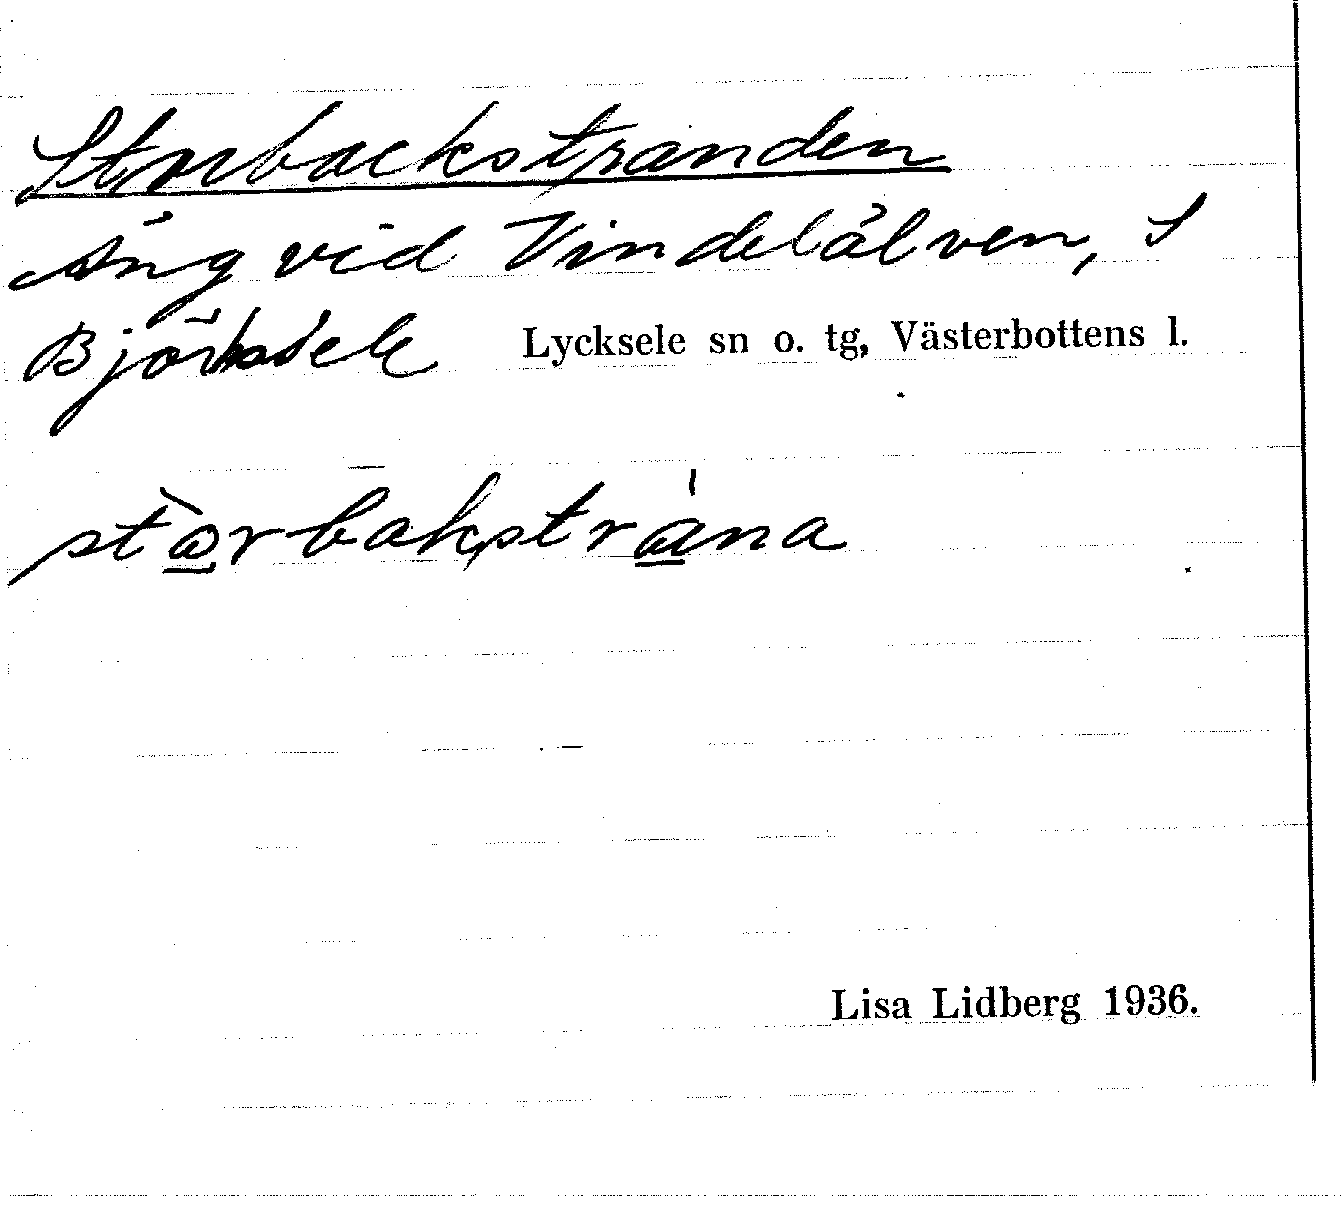 Storbackstranden
Äng vid Vindelälven, S
Björksele Lycksele sn o. tg, Västerbottens l.
stòrbakstrána
Lisa Lidberg 1936.